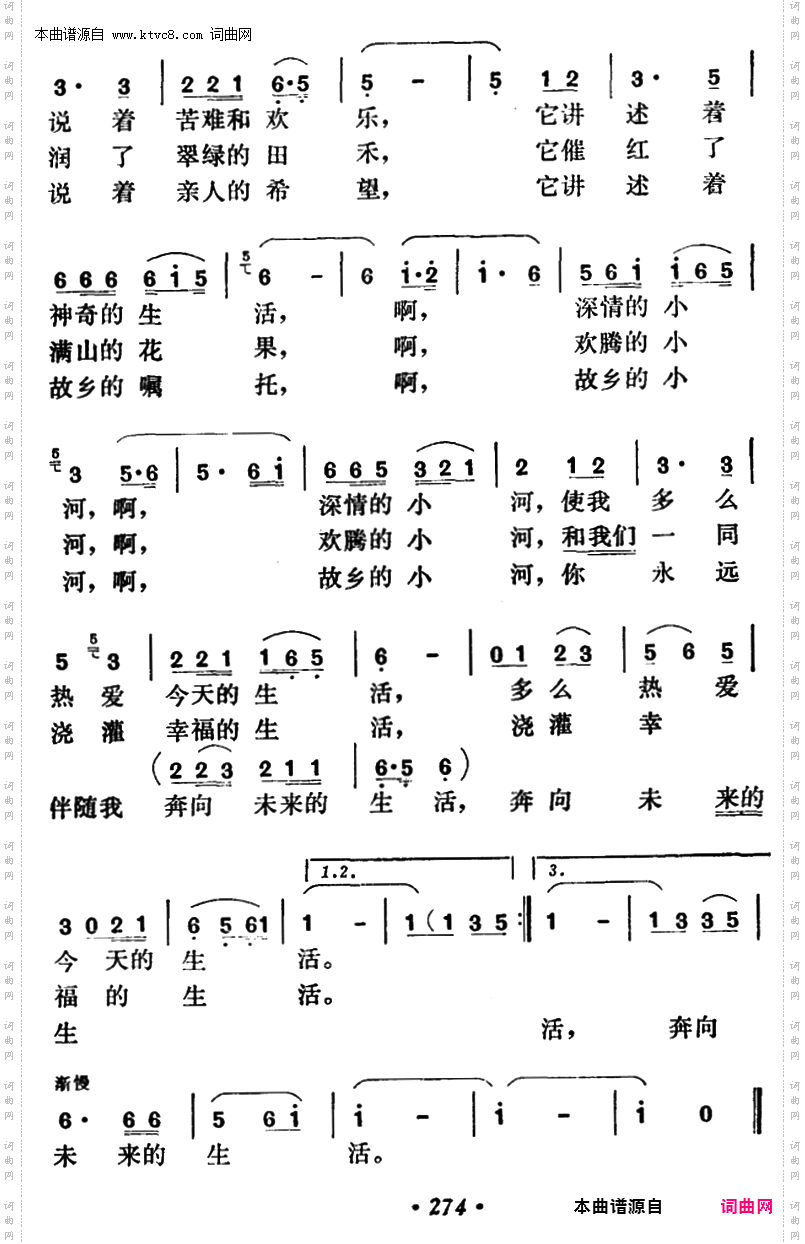 本曲谱源自 www.ktvc8.com 词曲网
3· 3 | 2 2 1 6·5 | 5 - | 5 1 2 | 3· 5 |
说 着 苦难和 欢 乐, 它讲 述 着
润 了 翠绿的 田 禾, 它催 红 了
说 着 亲人的 希 望, 它讲 述 着
6 6 6 6 i 5 | 5 6 - | 6 i·2 | i· 6 | 5 6 i i 6 5 |
神奇的 生 活, 啊, 深情的 小
满山的 花 果, 啊, 欢腾的 小
故乡的 嘱 托, 啊, 故乡的 小
5 3 5·6 | 5· 6 i | 6 6 5 3 2 1 | 2 1 2 | 3· 3 |
河, 啊, 深情的 小 河, 使我 多 么
河, 啊, 欢腾的 小 河, 和我们 一 同
河, 啊, 故乡的 小 河, 你 永 远
5 5 3 | 2 2 1 1 6 5 | 6 - | 0 1 2 3 | 5 6 5 |
热 爱 今天的 生 活, 多 么 热 爱
浇 灌 幸福的 生 活, 浇 灌 幸
(2 2 3 2 1 1 | 6·5 6)
伴随我 奔向 未来的 生 活, 奔 向 未 来的
1.2. 3.
3 0 2 1 | 6 5 6 1 | 1 - | 1 (1 3 5 :‖ 1 - | 1 3 3 5 |
今 天的 生 活。
福 的 生 活。
生 活, 奔向
渐慢
6· 6 6 | 5 6 i | i - | i - | i 0 ‖
未 来的 生 活。
· 274 ·
本曲谱源自 词曲网